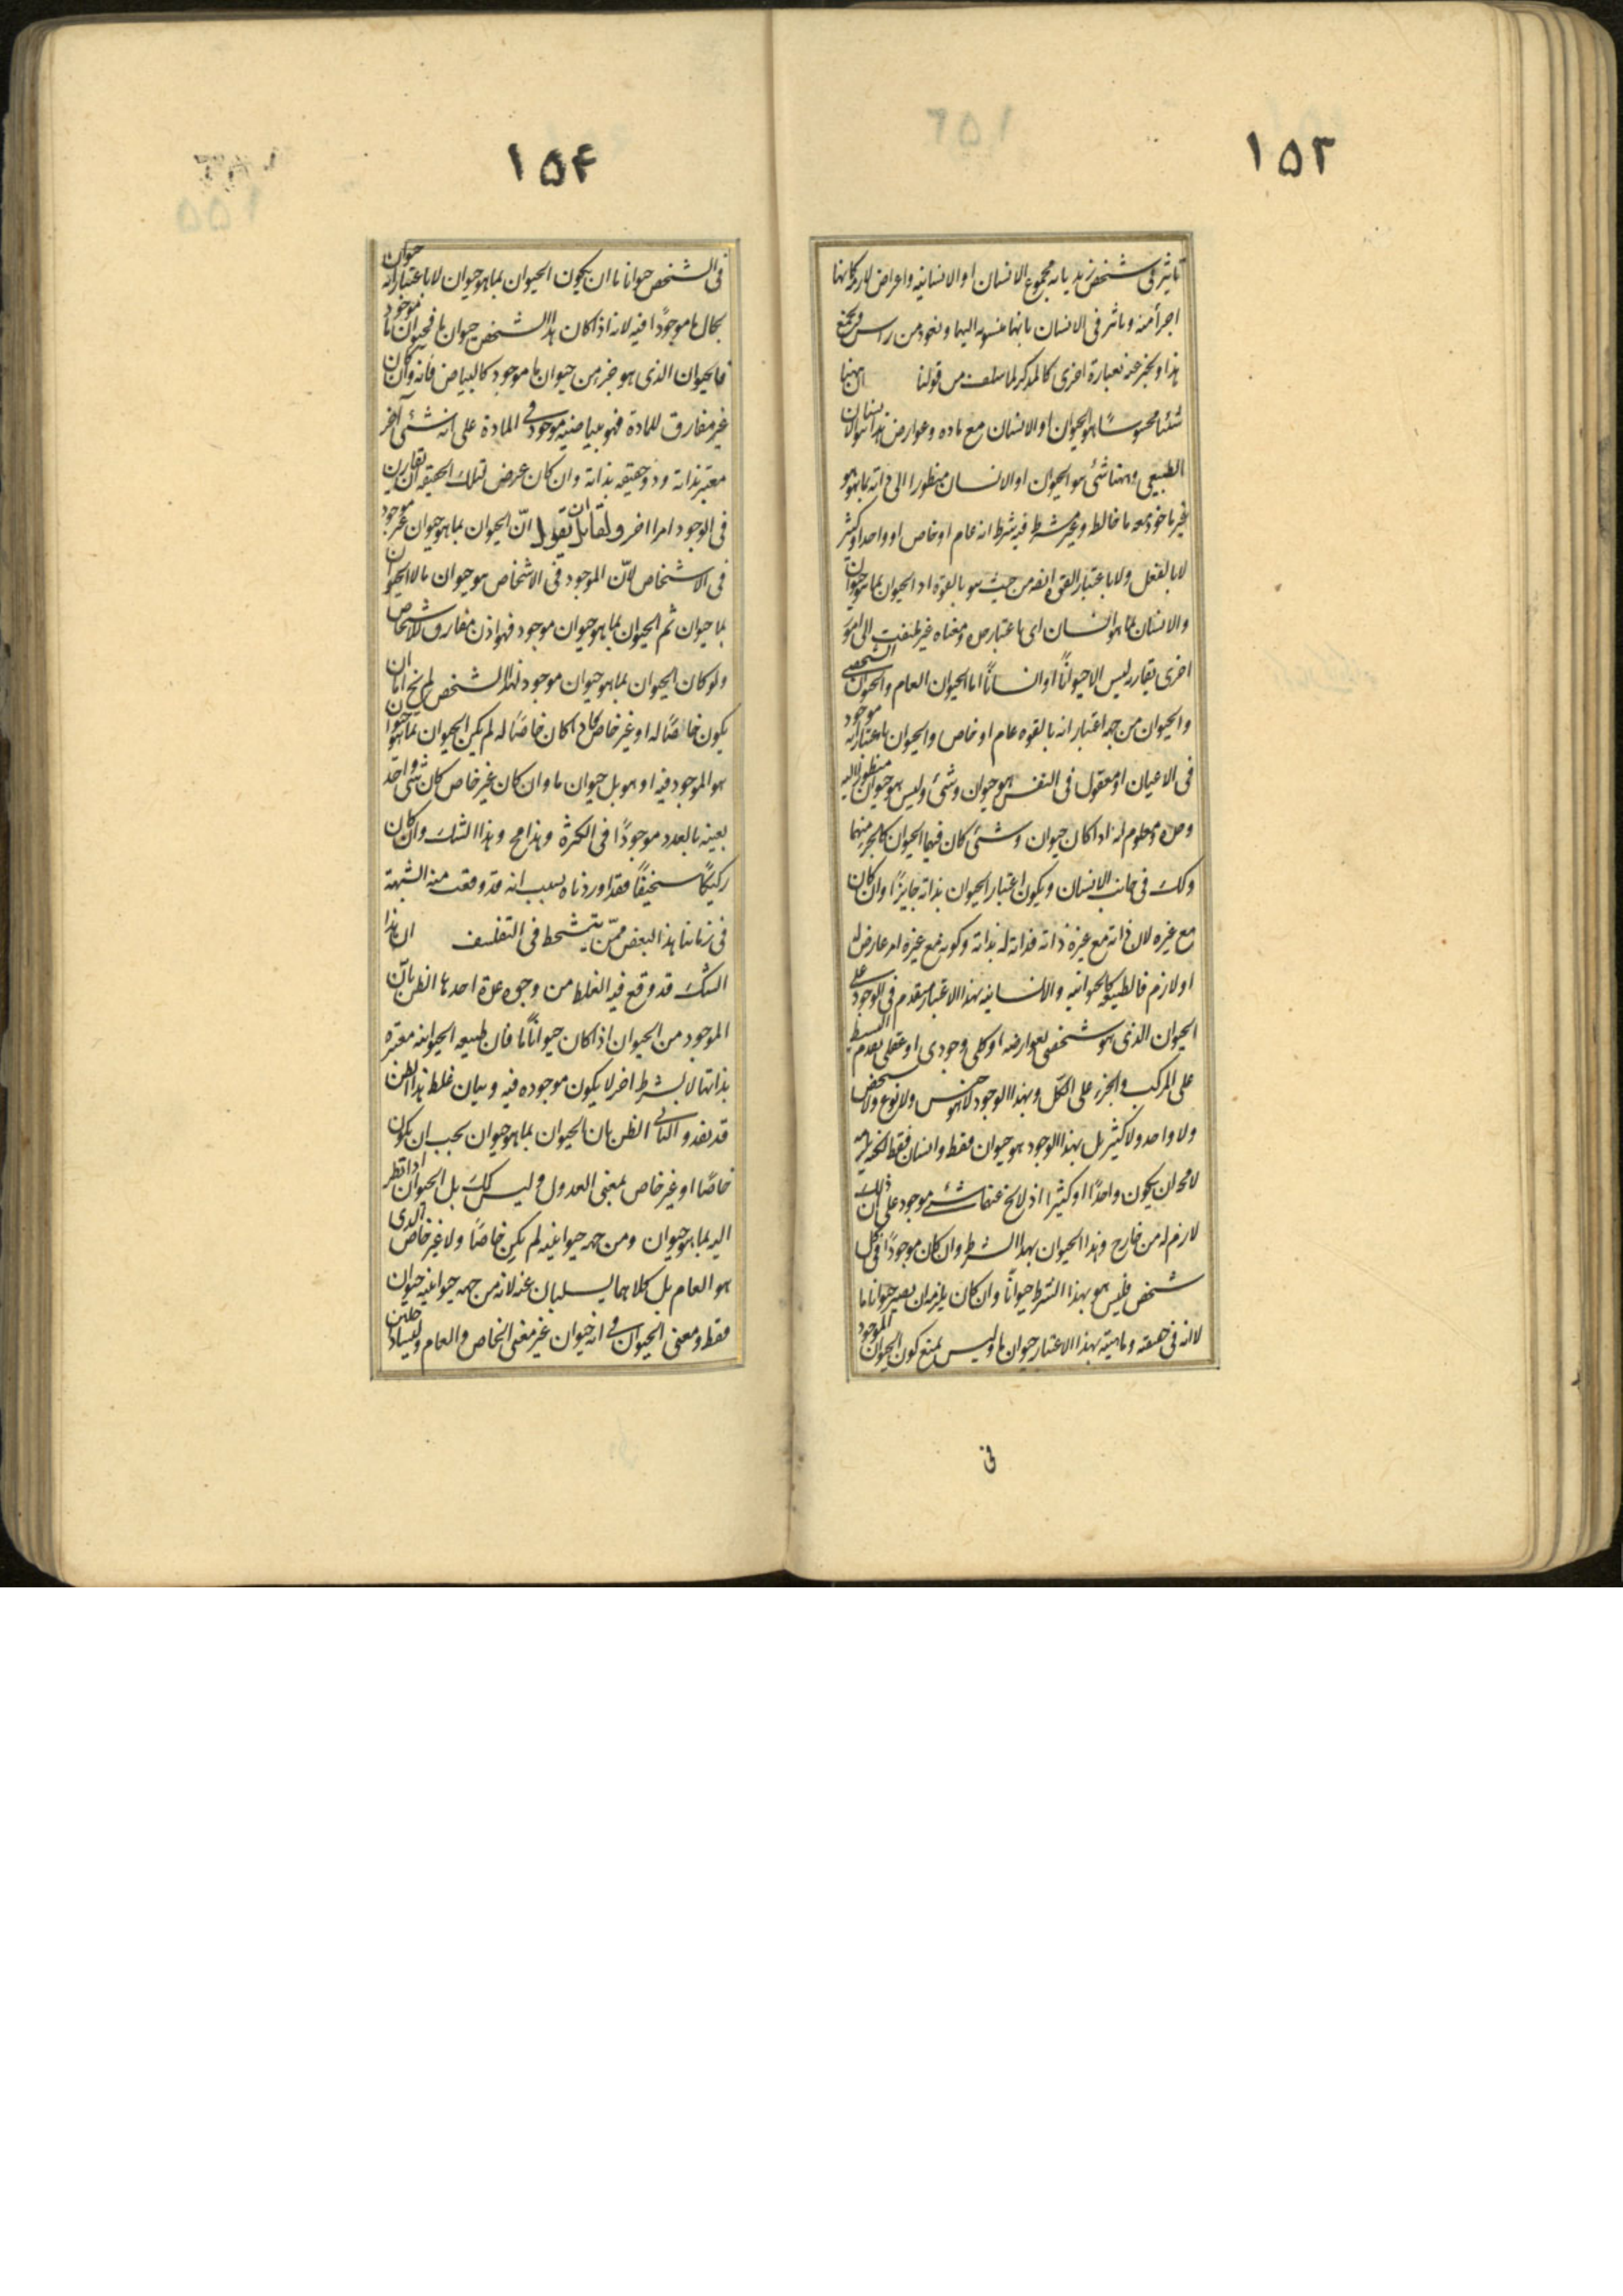 ١٥٣
تاثير فى شخص زيد بانه مجموع الانسان او الانسانية واعراض لازمة كانها
اجزأ منه وتاثر فى الانسان بانها منسوبه اليها ونعود من راس ونجمع
هذا ونخبر عنه بعبارة اخرى كالمذكر لما سلف من قولنا ان ههنا
شئيا محسوسًا هو الحيوان او الانسان مع ماده وعوارض هذا هو الانسان
الطبيعى وههنا شئ هو الحيوان او الانسان منظورا الى ذاته بما هو هو
غير ماخوذ معه ما خالطه وغير مشترط فيه شرط انه عام او خاص او واحد او كثير
لا بالفعل ولا باعتبار القوة ايضه من حيث هو بالقوة اد الحيوان بما هو حيوان
والانسان بما هو انسان اى باعتبار حده ومعناه غير ملتفت الى امور
اخرى يقارنه ليس الا حيوانًا او انسانًا اما الحيوان العام والحيوان الشخصى
والحيوان من جهة اعتبار انه بالقوه عام او خاص والحيوان باعتبار انه موجود
فى الاعيان او معقول فى النفس هو حيوان وشئ وليس هو حيوان منظورا اليه
وحده ومعلوم انه اذا كان حيوان وشئ كان فيهما الحيوان كالجزء منهما
وكك فى جانب الانسان ويكون اعتبار الحيوان بذاته جايزًا وان كان
مع غيره لان ذاته مع غيره ذاته فذاته له بذاته وكونه مع غيره امر عارض له
او لازم فالطبيعة كالحيوانيه والانسانيه بهذا الاعتبار متقدم فى الوجود على
الحيوان الذى هو شخصى بعوارضه او كلى وجودى او عقلى تقدم البسيط
على المركب والجزء على الكل وبهذا الوجود لا هو جنس ولا نوع ولا شخص
ولا واحد ولا كثير بل بهذا الوجود هو حيوان فقط وانسان فقط لكنه يلزمه
لامحه ان يكون واحدًا او كثيرا اذ لا يخ عنهما شئ موجود على ان ذلك
لازم له من خارج وهذا الحيوان بهذا الشرط وان كان موجودًا فى كل
شخص فليس هو بهذا الشرط حيوانًا ما وان كان يلزمه ان يصير حيوانا ما
لانه فى حقيقته وماهيته بهذا الاعتبار حيوان ما وليس يمنع كون الحيوان الموجود
فى
١٥٤
فى الشخص حيوانا ما ان يكون الحيوان بما هو حيوان لا باعتبار انه حيوان
بحال ما موجودًا فيه لانه اذا كان هذا الشخص حيوان ما فحيوان ما موجود
فالحيوان الذى هو جزء من حيوان ما موجود كالبياض فانه وان كان
غير مفارق للمادة فهو ببياضيته موجود فى المادة على انه شئ آخر
معتبر بذاته وذو حقيقه بذاته وان كان عرض لتلك الحقيقه ان تقارن
فى الوجود امرا اخر ولقائل ان تقول انّ الحيوان بما هو حيوان غير موجود
فى الاشخاص لانّ الموجود فى الاشخاص هو حيوان ما لا الحيوان
بما حيوان ثم الحيوان بما هو حيوان موجود فهو اذن مفارق للاشخاص
ولو كان الحيوان بما هو حيوان موجود لهذا الشخص لم يخ اما ان
يكون خاصًا له او غير خاص فان كان خاصًا له لم يكن الحيوان بما هو حيوان
هو الموجود فيه او هو بل حيوان ما وان كان غير خاص كان شئ واحد
بعينه بالعدد موجودًا فى الكثرة وهذا مح وهذا الشك وان كان
ركيكًا سخيفًا فقد اوردناه بسبب انه قد وقعت منه الشبهة
فى زماننا هذا لبعض ممّن يتشحط فى التفلسف ان هذا
الشك قد وقع فيه الغلط من وجوه عدة احدها الظن بانّ
الموجود من الحيوان اذا كان حيوانًا ما فان طبيعه الحيوانيه معتبره
بذاتها لا بشرط اخر لا يكون موجوده فيه وبيان غلط هذا الظن
قد تقدم والثانى الظن بان الحيوان بما هو حيوان يجب ان يكون
خاصًا او غير خاص بمعنى العدول وليس كك بل الحيوان اذا نظر
اليه بما هو حيوان ومن جهه حيوانيته لم يكن خاصًا ولا غير خاص الذى
هو العام بل كلاهما يسلبان عنه لانه من جهه حيوانيته حيوان
فقط ومعنى الحيوان فى انه حيوان غير معنى الخاص والعام وليسا داخلين